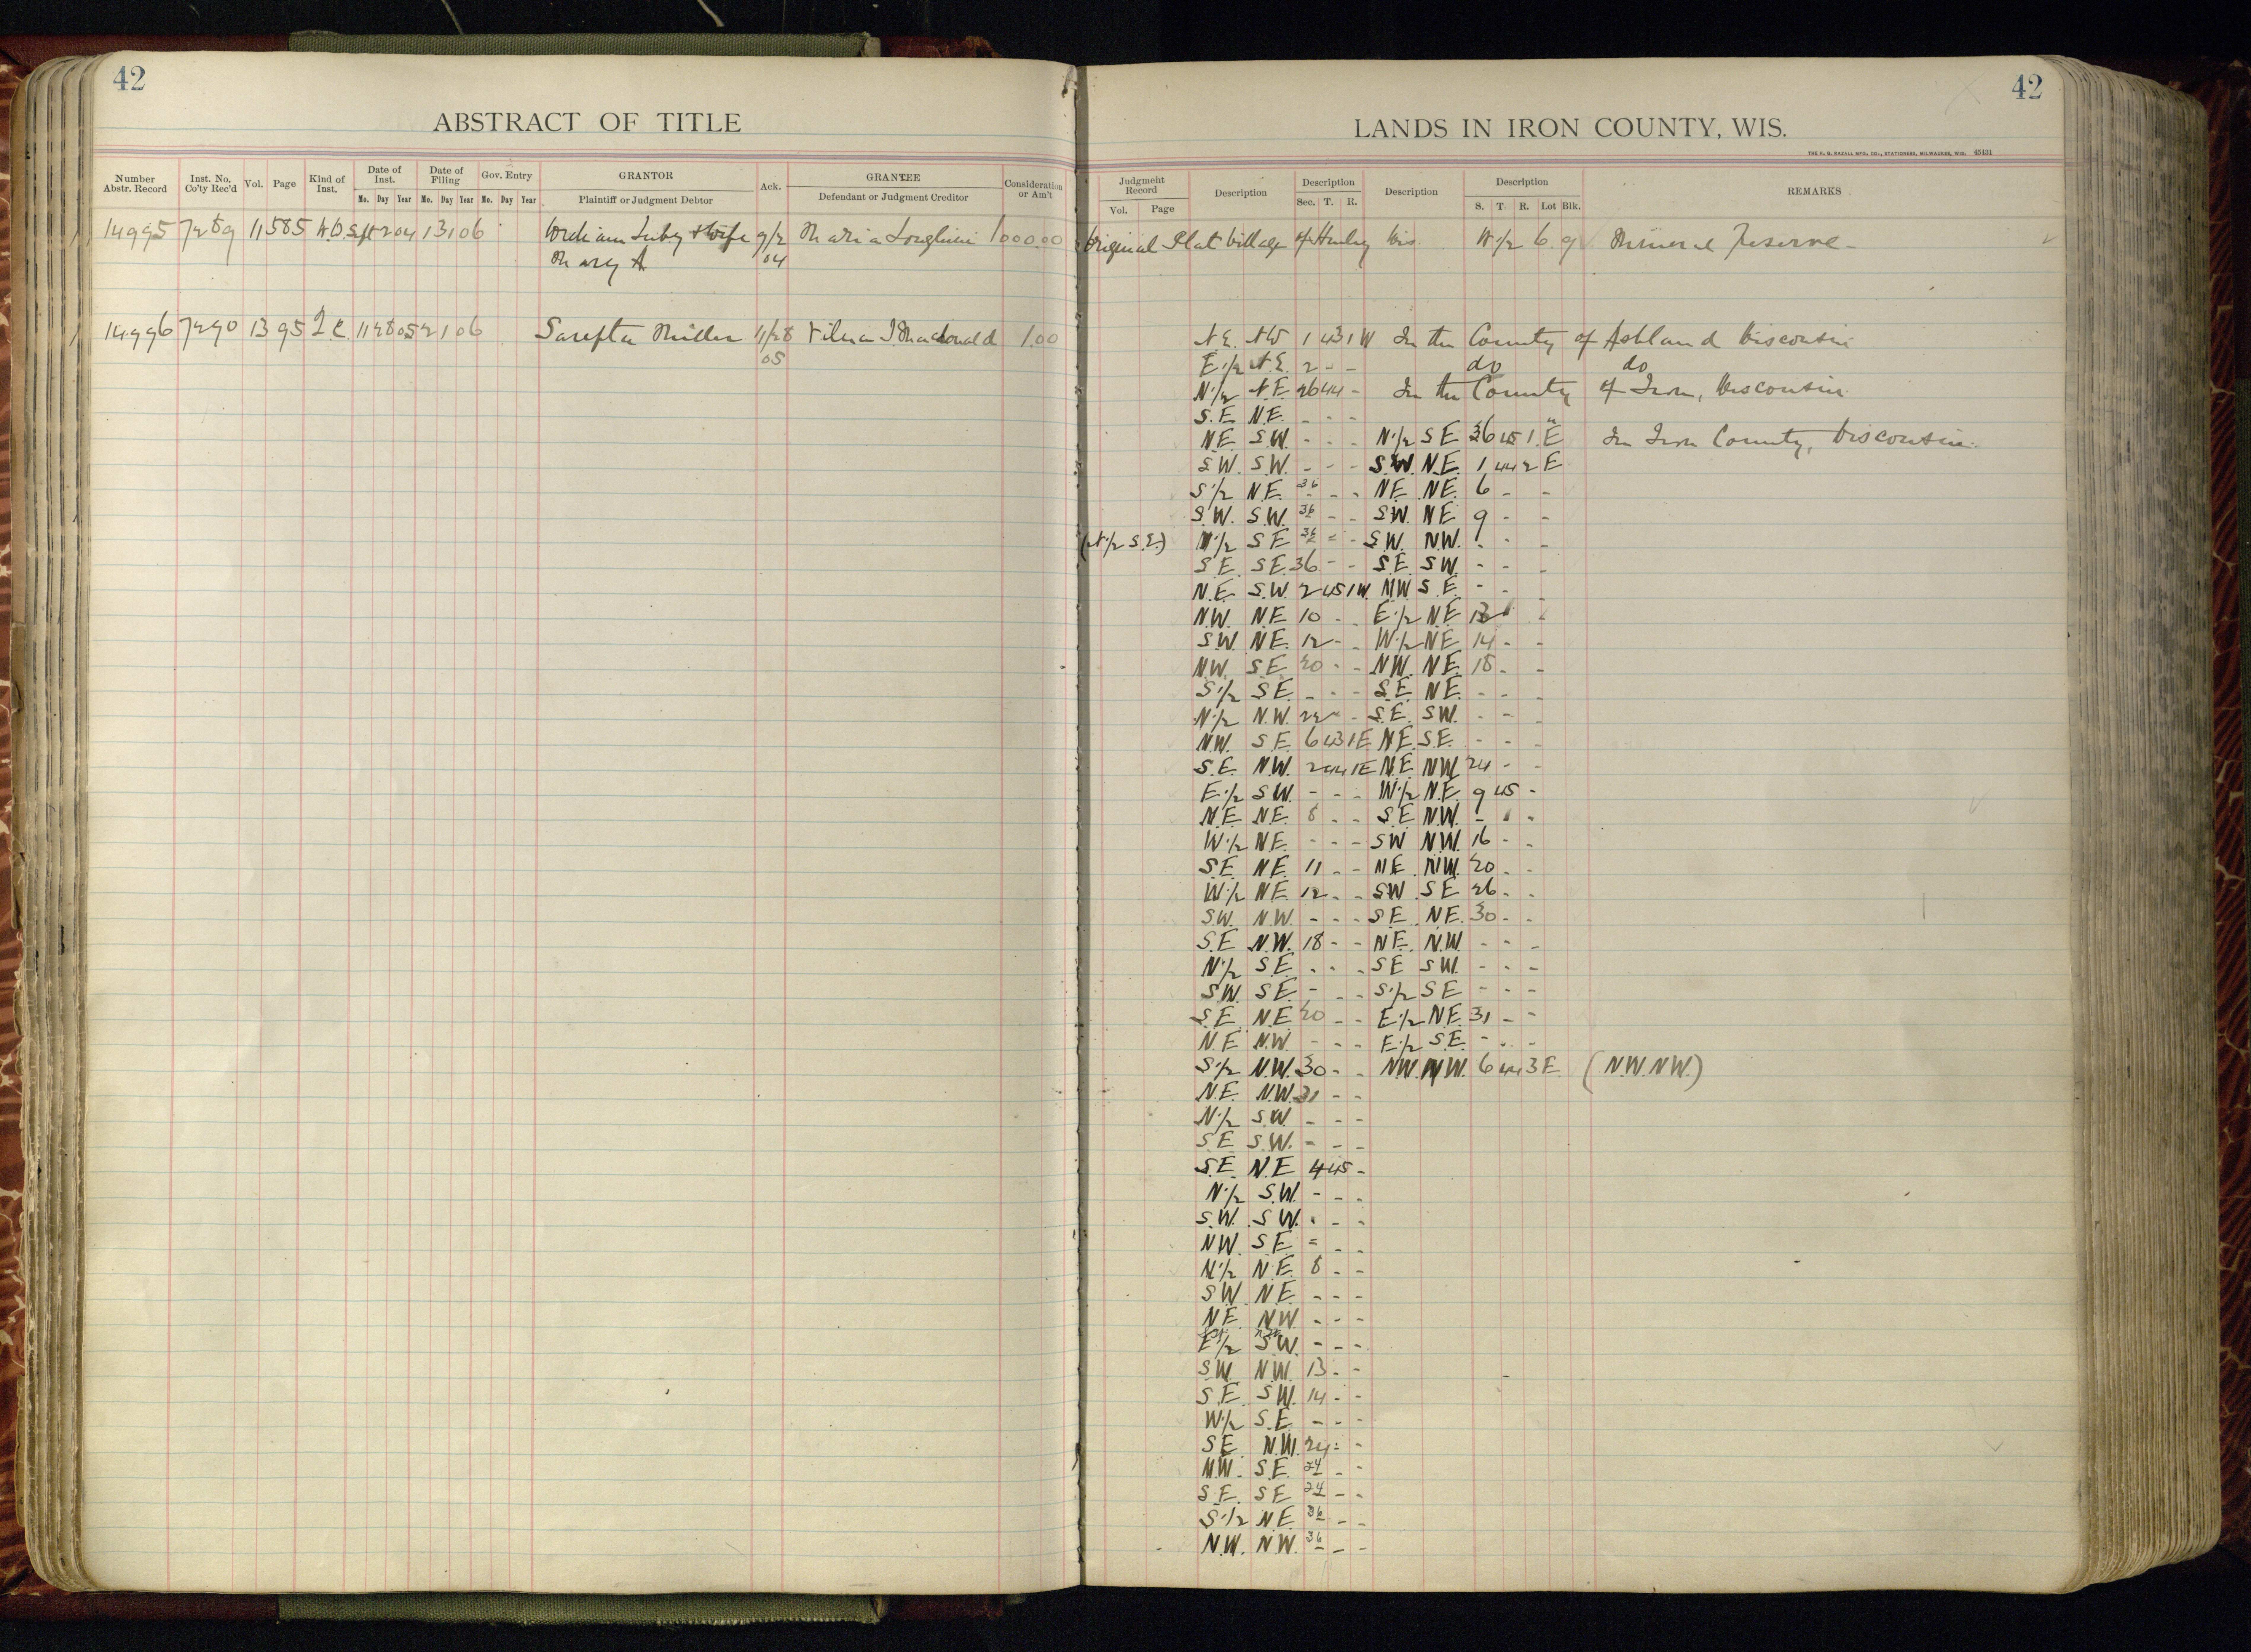 42
ABSTRACT OF TITLE
Number Abstr. Record Inst. No. Co'ty Rec'd Vol. Page Kind of Inst. Date of Inst. Mo. Day Year Date of Filing Mo. Day Year Gov. Entry Mo. Day Year GRANTOR Plaintiff or Judgment Debtor Ack. GRANTEE Defendant or Judgment Creditor Consideration or Am't
14995 7289 11 585 W.D. Sept 2 04 1 31 06 William & Wife 9/2 Maria 1000.00
Mary A 04
14996 7290 13 95 Q.C. 11 28 05 2 1 06 Sarepta Miller 11/28 Macdonald 1.00
05
42
LANDS IN IRON COUNTY, WIS.
THE H. G. RAZALL MFG. CO., STATIONERS, MILWAUKEE, WIS. 45431
Judgment Record Vol. Page Description Description Sec. T. R. Description Description S. T. R. Lot Blk. REMARKS
Original Plat Village of Hurley Wis W 1/2 6 9 Mineral Reserve
N.E. NW 1 43 1 W In the County of Ashland Wisconsin
E 1/2 N.E. 2 - - do do
N 1/2 N.E 26 44 - In the County of Iron, Wisconsin
S.E N.E. - - -
NE S.W. - - - N 1/2 SE 36 45 1 E In Iron County, Wisconsin
S.W. S.W. - - - S.W. N.E. 1 44 2 E
S 1/2 N.E. 36 - - N.E. N.E. 6 - -
S.W. S.W. 36 - - S.W. NE 9 - -
(N 1/2 S.E.) N 1/2 SE 36 - - S.W. N.W. - - -
S.E. S.E. 36 - - S.E. SW. - - -
N.E. S.W. 2 45 1 W. NW S.E. - - -
N.W. N.E 10 - - E 1/2 N.E 13 - -
S.W. N.E. 12 - - W 1/2 NE 14 - -
N.W. S.E. 20 - - N.W. N.E. 18 - -
S 1/2 S.E. - - - S.E NE. - - -
N 1/2 N.W. 22 - - S.E. SW. - - -
N.W. S.E. 6 43 1 E N.E. S.E. - - -
S.E. N.W. 2 44 1 E N.E. NW 24 - -
E 1/2 S.W. - - - W 1/2 N.E. 9 45 -
N.E. N.E. 8 - - S.E N.W. - - -
W 1/2 N.E. - - - SW N.W. 16 - -
S.E. N.E. 11 - - N.E. N.W. 20 - -
W 1/2 N.E 12 - - SW. S.E 26 - -
S.W. N.W. - - - S.E. N.E. 30 - -
S.E N.W. 18 - - N.E. N.W. - - -
N 1/2 S.E. - - - SE SW. - - -
S.W. S.E. - - - S 1/2 SE - - -
S.E. N.E 20 - - E 1/2 N.E. 31 - -
N.E N.W - - - E 1/2 S.E. - - -
S 1/2 N.W. 30 - - N.W. N.W. 6 44 3 E. (N.W. N.W.)
N.E. N.W. 31 - -
N 1/2 S.W. - - -
S.E S.W. - - -
S.E. N.E 4 45 -
N 1/2 S.W. - - -
S.W. S.W. - - -
N.W. S.E. - - -
N 1/2 N.E. 8 - -
S.W. N.E. - - -
N.E. N.W. - - -
E 1/2 S.W. - - -
S.W. N.W. 13 - -
S.E. S.W. 14 - -
W 1/2 S.E. - - -
S.E. N.W. 24 - -
N.W. S.E. 24 - -
S.E. S.E 24 - -
S 1/2 N.E. 36 - -
N.W. N.W. 36 - -